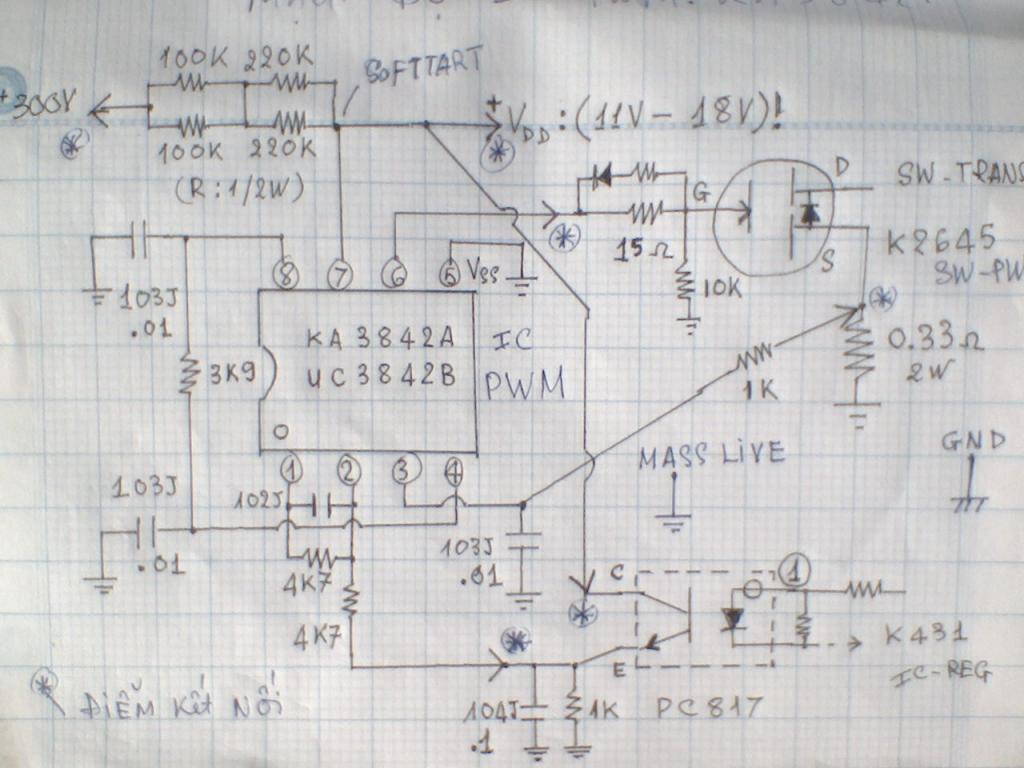 100K 220K
SOFTTART
+300V
100K 220K
(R:1/2W)
+
VDD:(11V-18V)!
D
SW-TRANS
G
15Ω
S
K2645
SW-PW
10K
8 7 6 5 VSS
103J
.01
3K9
KA 3842A
UC 3842B
IC
PWM
0.33Ω
2W
1K
1 2 3 4
MASS LIVE
GND
103J
.01
102J
4K7
103J
.01
4K7
C
1
E
K431
IC-REG
ĐIỂM KẾT NỐI
104J
.1
1K
PC817